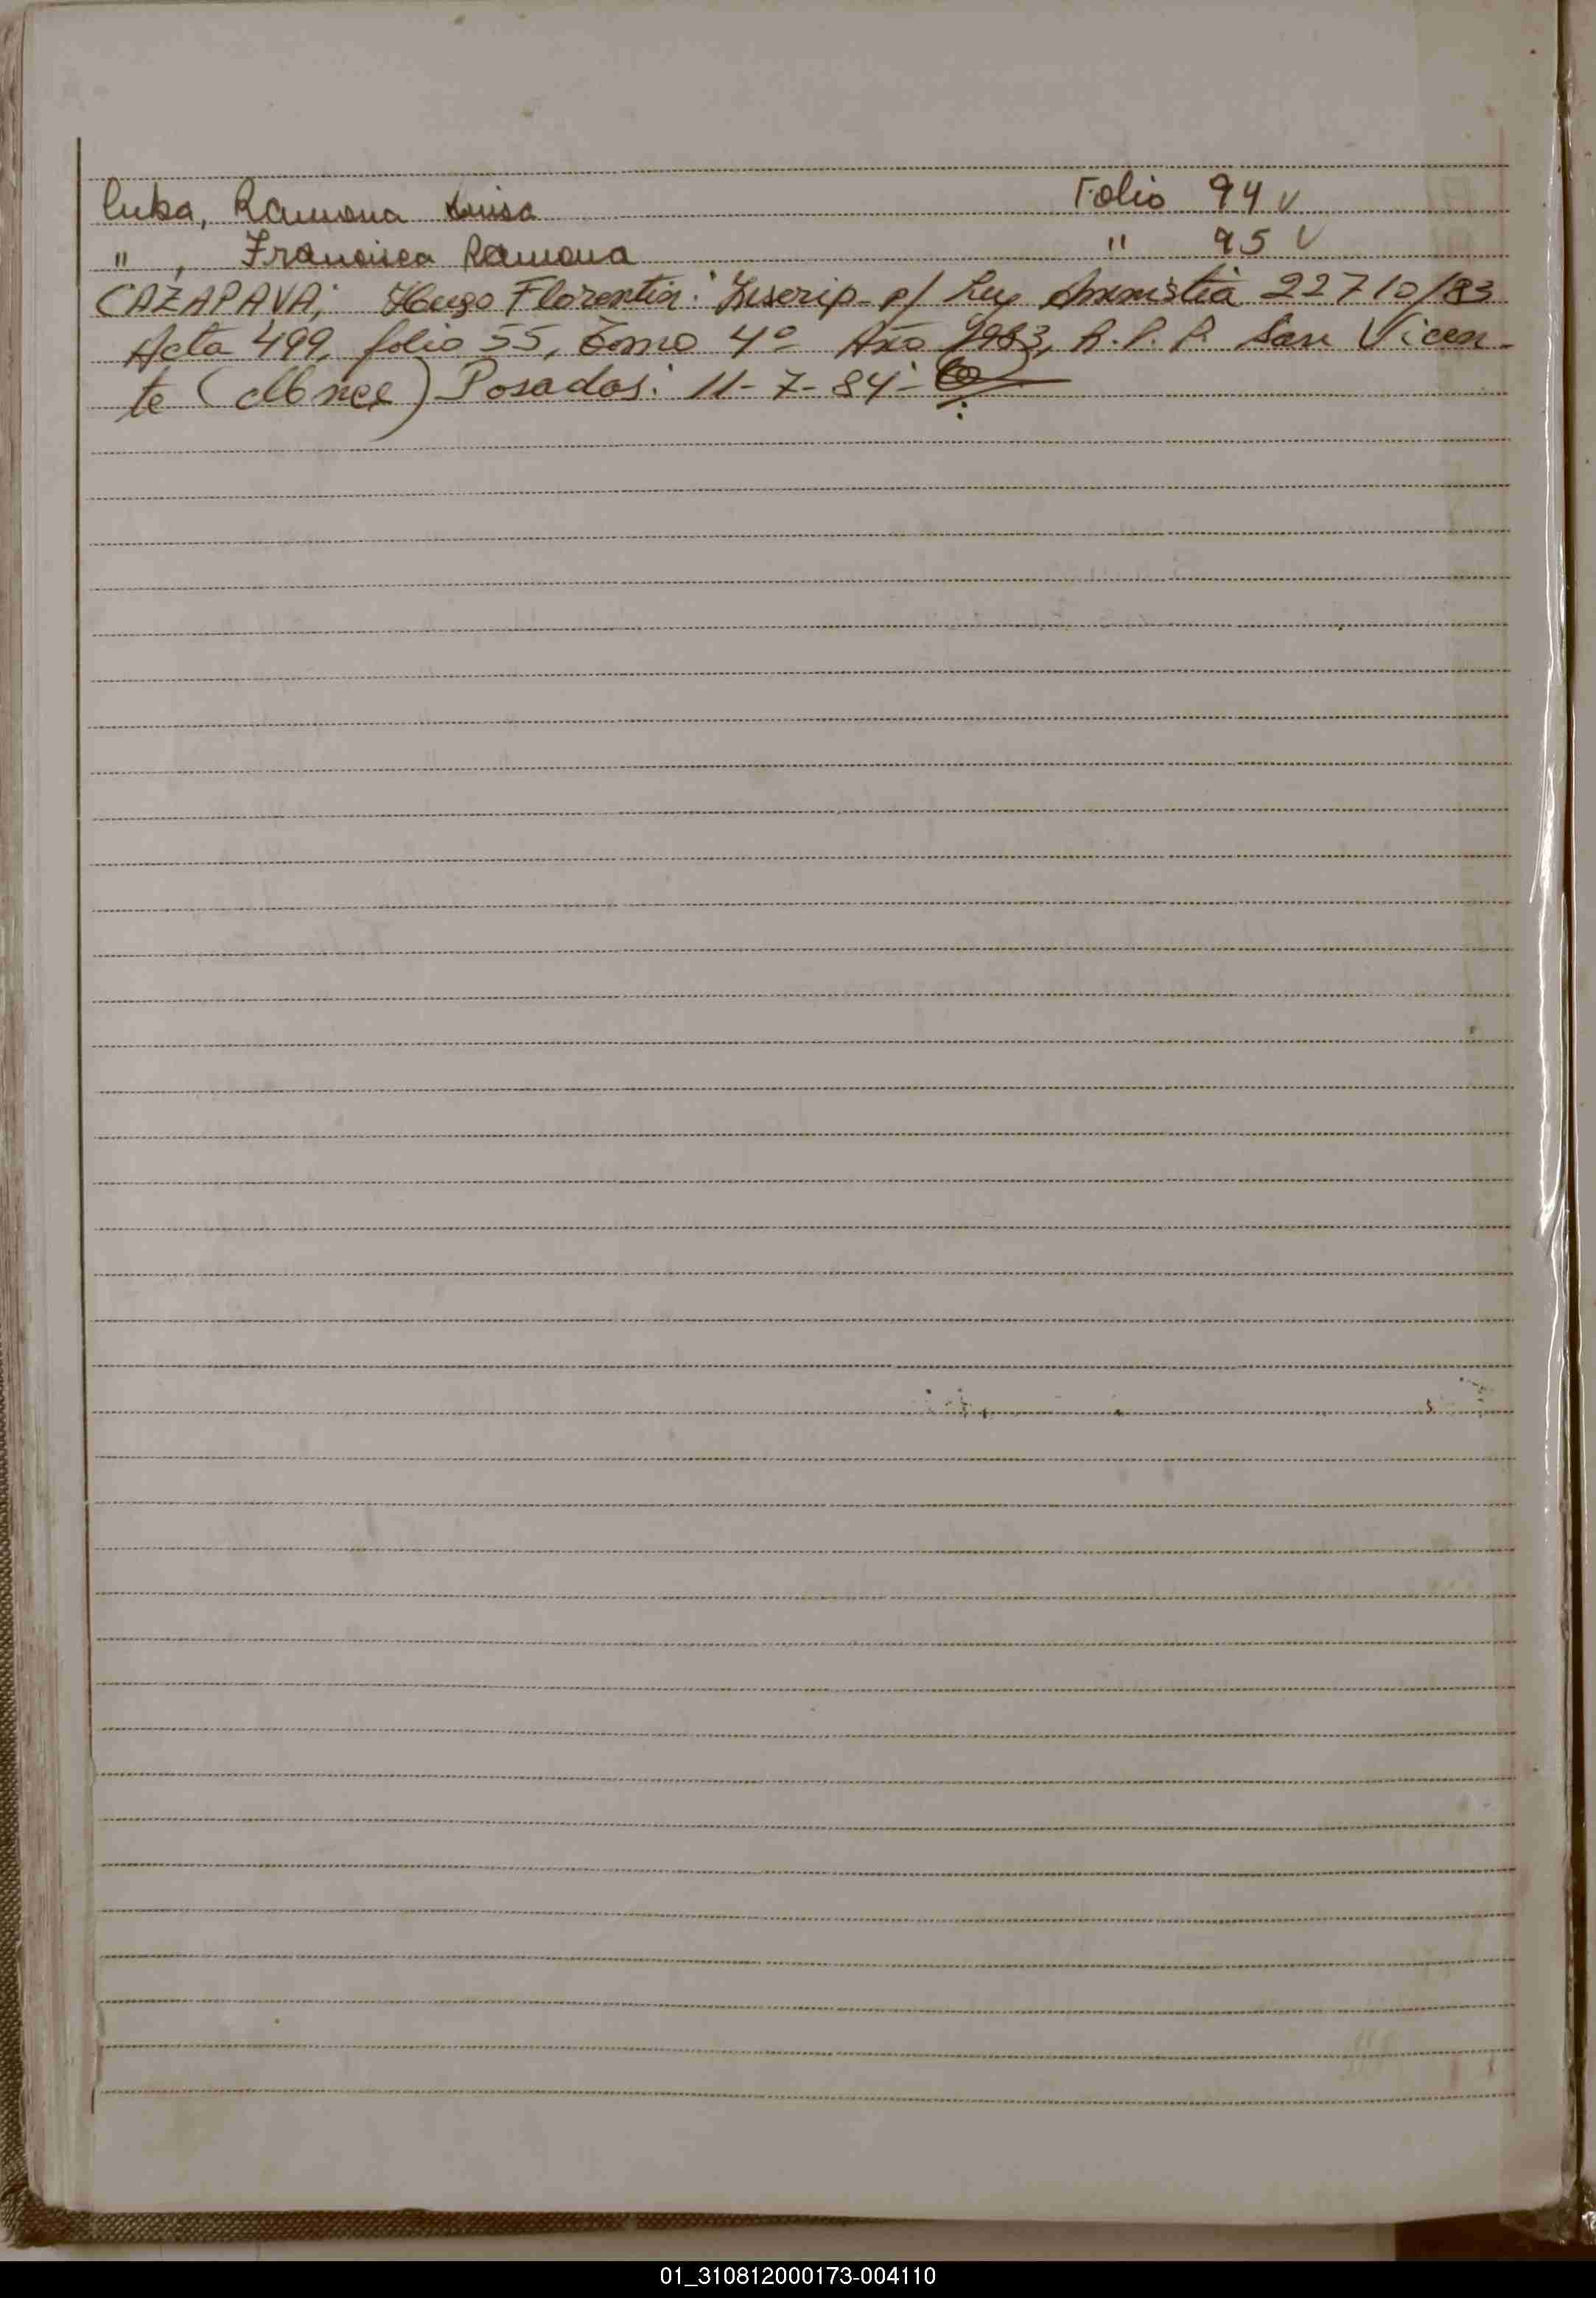 Cuba, Ramona Luisa Folio 94 v
" , Francisca Ramona " 95 v
CAZAPAVA; Hugo Florentin: Inscrip. p/ Ley Amnistia 22710/83
Acta 499, folio 55, Tomo 4º Año 1983, R.P.P. San Vicen-
te (Mnes) Posadas: 11-7-84-
01_310812000173-004110